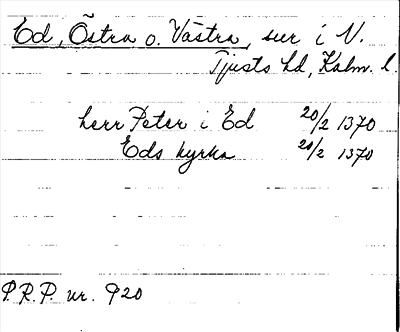 Ed, Östra o. Västra, sur i N.
Tjusts hd, Kalm. l.
herr Peter i Ed 20/2 1370
Eds kyrka 20/2 1370
P.R.P. nr. 920